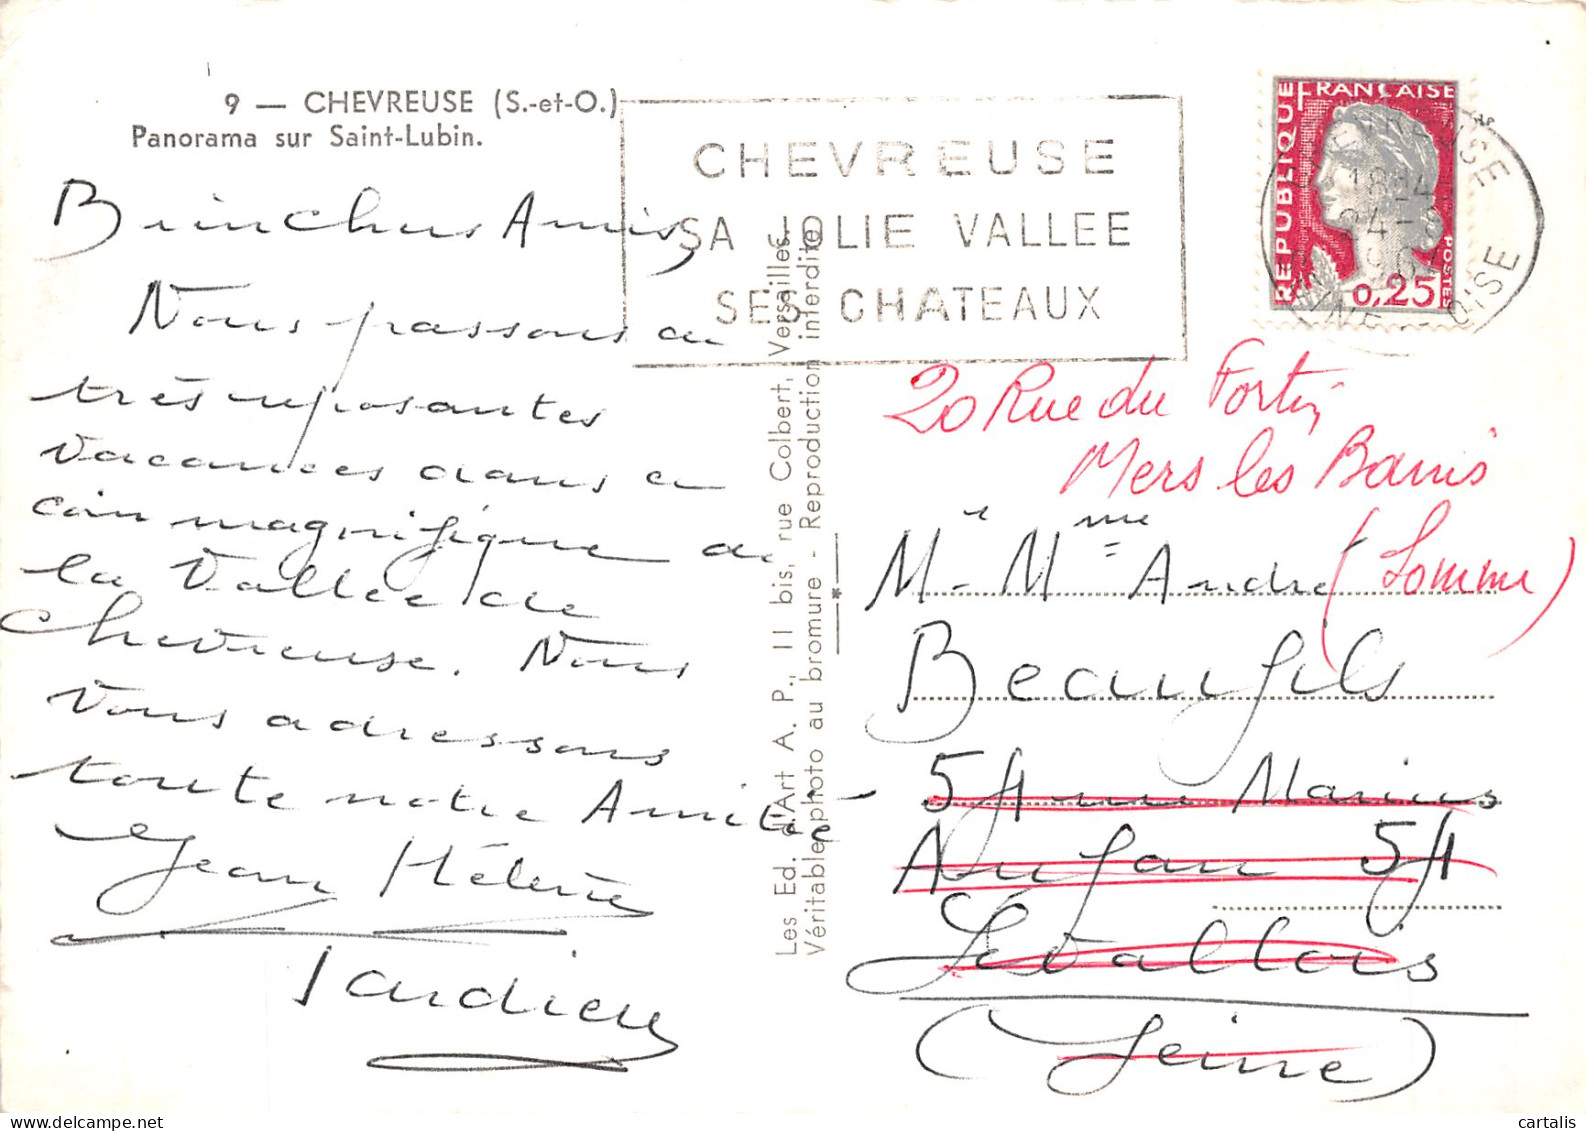 9 — CHEVREUSE (S.-et-O.)
Panorama sur Saint-Lubin.
Bien Chers Amis
Nous passons de
très reposantes
vacances dans ce
coin magnifique de
la Vallée de
Chevreuse. Nous
vous adressons
toute notre Amitié -
Jean Hélène
Tardieu
CHEVREUSE
SA JOLIE VALLEE
SES CHATEAUX
Les Ed. d'Art A. P., 11 bis, rue Colbert, Versailles
Véritable photo au bromure - Reproduction interdite
REPUBLIQUE FRANÇAISE
POSTES
0,25
CHEVREUSE
18H
24-8
SEINE OISE
20 Rue du Fortin
Mers les Bains
(Somme)
Mr Mme André
Beaufils
54 rue Marius
Aufan 54
Levallois
(Seine)
cartalis